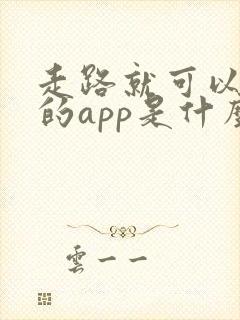 走路就可以
的app是什麼
雲一一